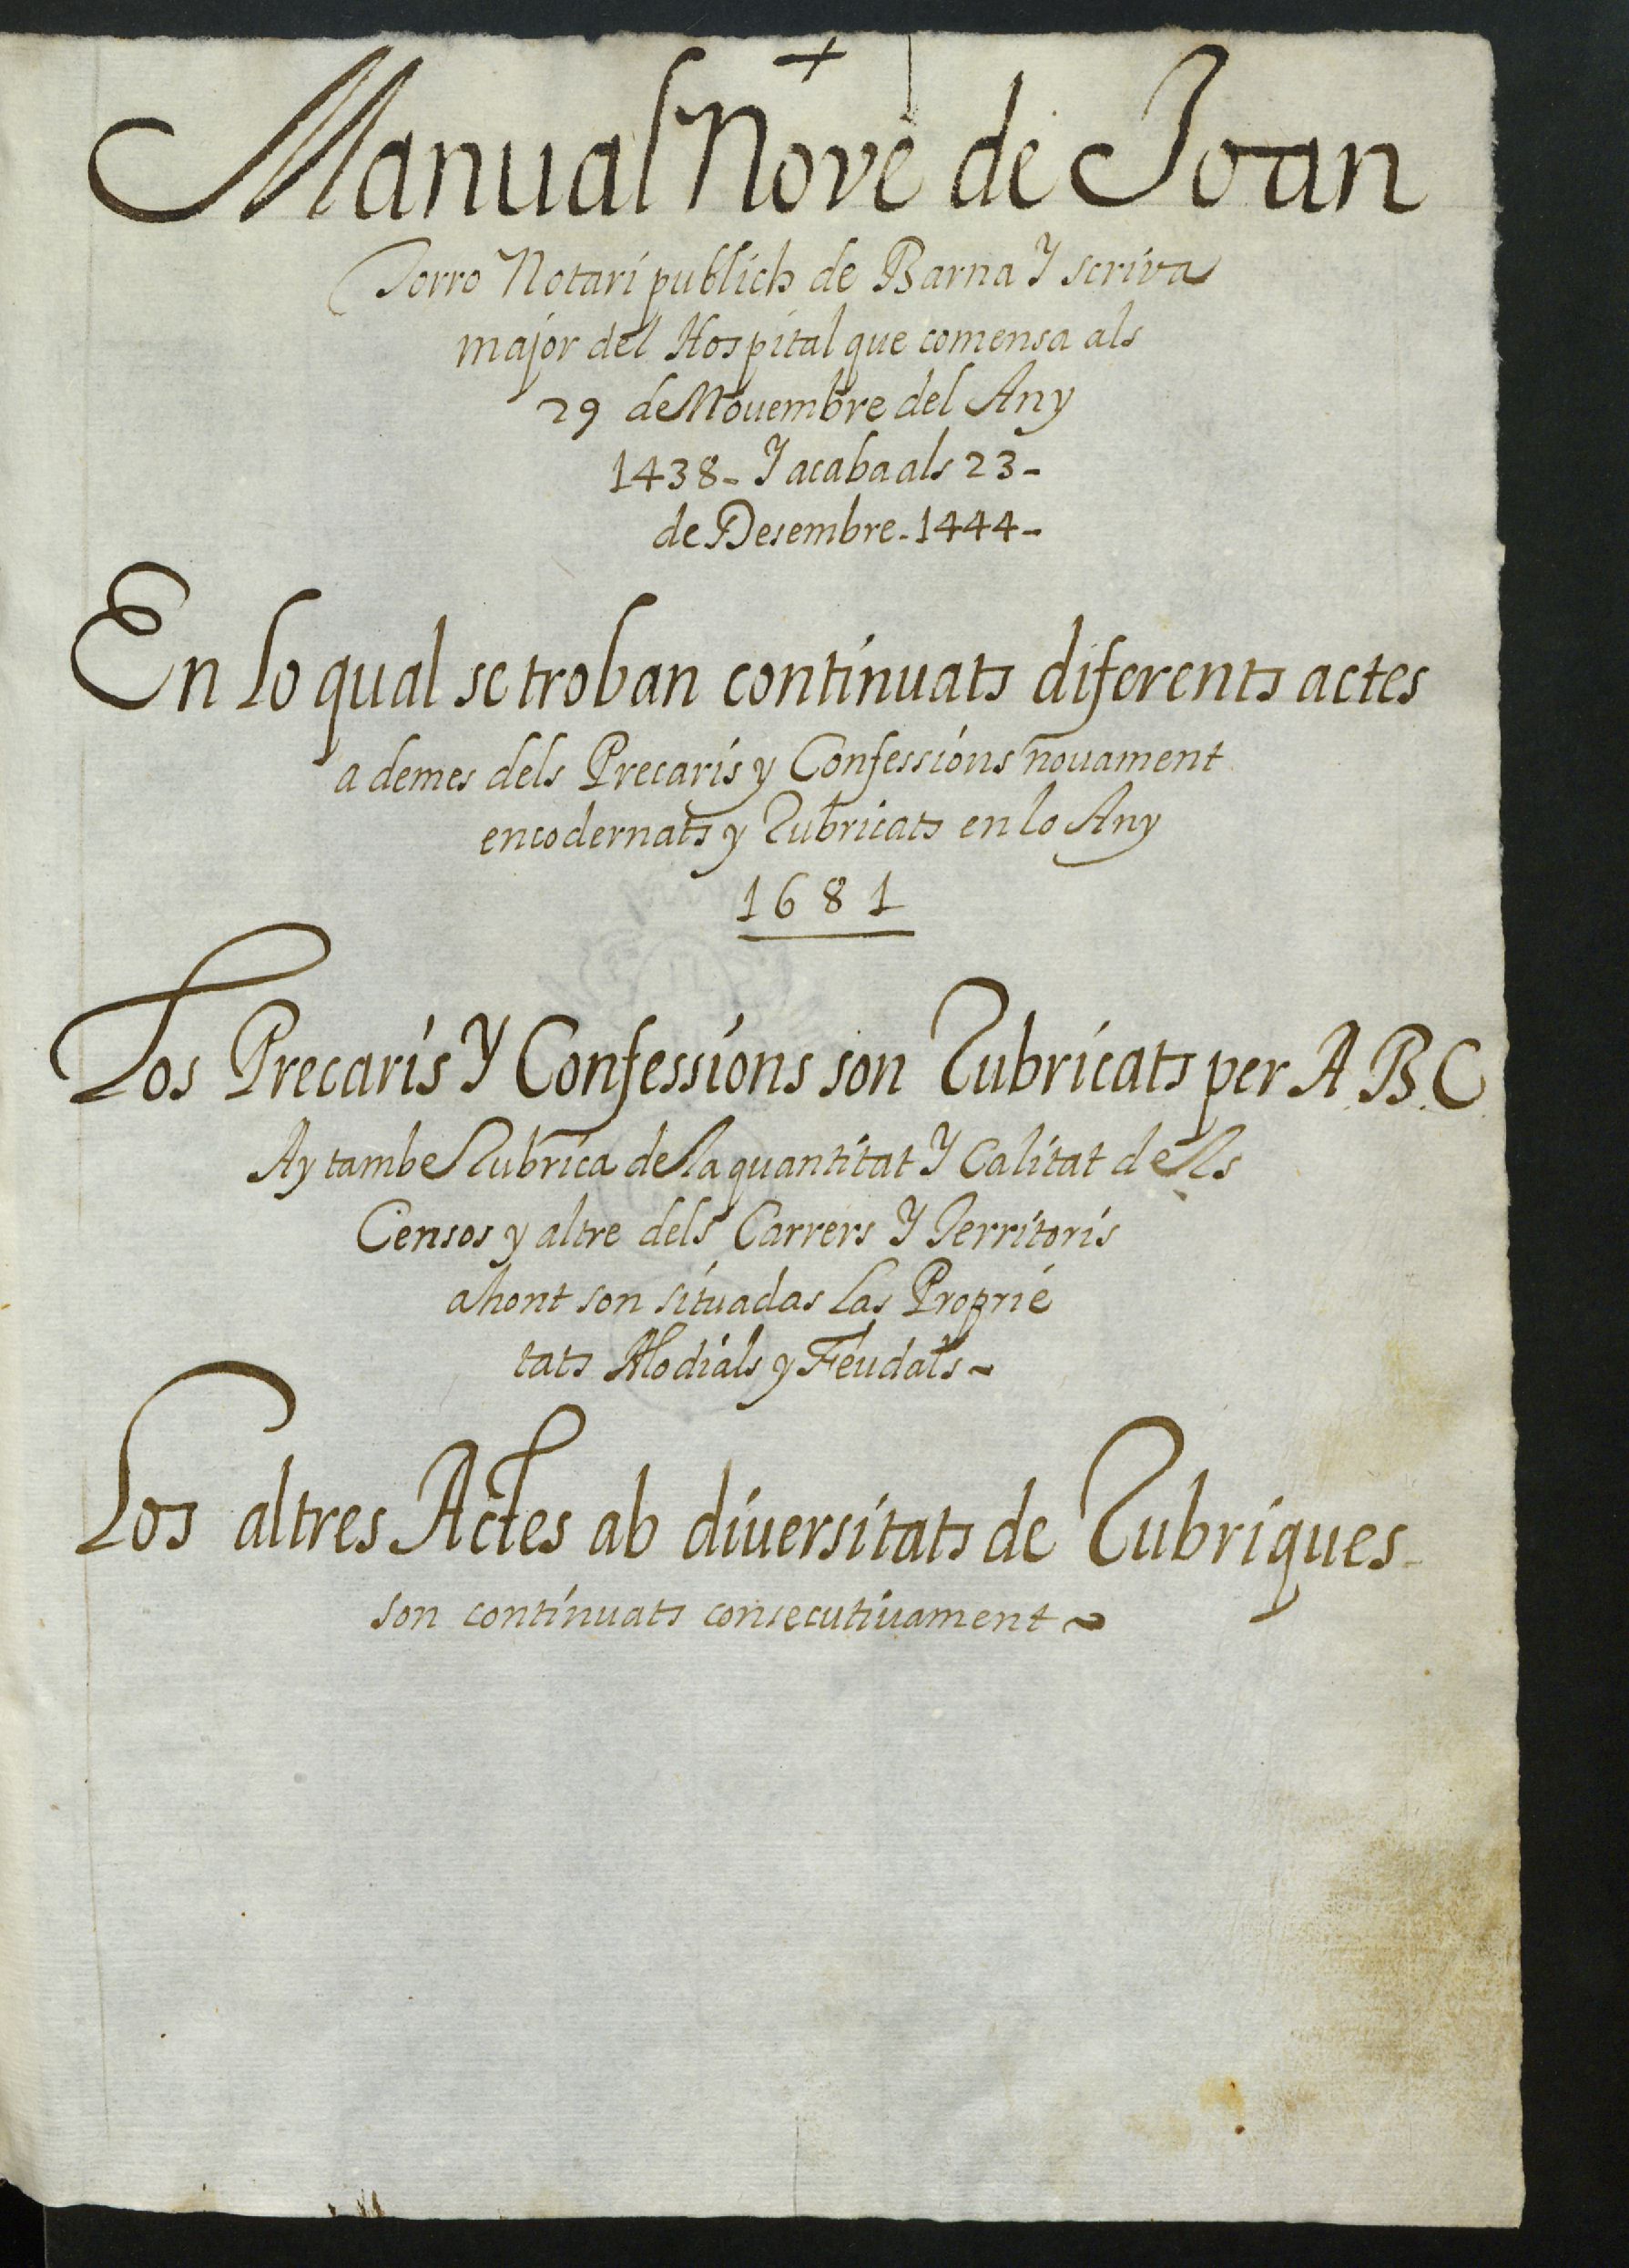 +
Manual Nové de Joan
Torro Notari publich de Barna Y scriva
major del Hospital que comensa als
29 de Nouembre del Any
1438 - Y acaba als 23 -
de Desembre - 1444 -
En lo qual se troban continuats diferents actes
a demes dels Precaris y Confessions nouament
encodernats y Rubricats en lo Any
1681
Los Precaris Y Confessions son Rubricats per A.B.C.
Ay tambe Rubrica de la quantitat Y Calitat dells
Censos y altre dels Carrers Y Territoris
ahont son situadas Las Proprie
tats Alodials y Feudals -
Los altres Actes ab diuersitats de Rubriques -
son continuats consecutiuament ~